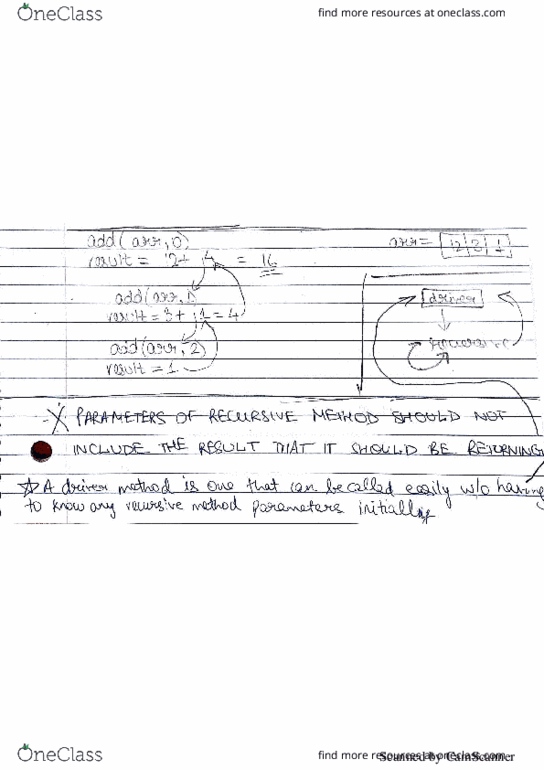 OneClass
find more resources at oneclass.com
add(arr,0)
result = 12+ 4 = 16
arr= 12 3 1
add(arr,1)
result = 3+ 1 = 4
driver
recursive
add(arr,2)
result = 1
X PARAMETERS OF RECURSIVE METHOD SHOULD NOT
INCLUDE THE RESULT THAT IT SHOULD BE RETURNING
☆ A driver method is one that can be called easily w/o having
to know any recursive method parameters initially
OneClass
find more resources at oneclass.com
Scanned by CamScanner